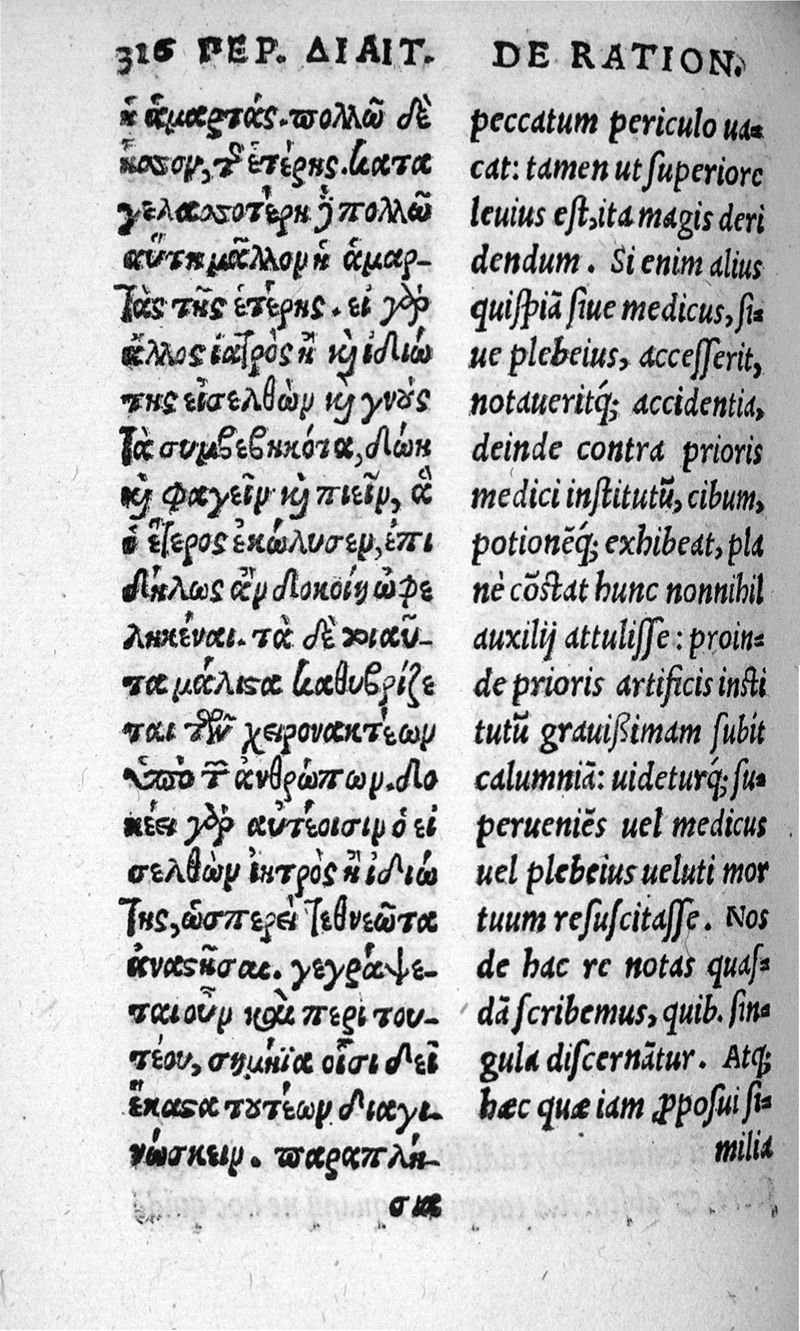 316 ΠΕΡ. ΔΙΑΙΤ.
ἡ ἁμαρτάς. πολλῶ δὲ
ἧσσον, τῆς ἑτέρης. κατα
γελαστοτέρη ἢ πολλῶ
αὕτη μᾶλλον ἡ ἁμαρ-
τὰς τῆς ἑτέρης. εἰ γὰρ
ἄλλος ἰατρὸς ἢ καὶ ἰδιώ
της εἰσελθὼν καὶ γνοὺς
τὰ συμβεβηκότα, δώη
καὶ φαγεῖν καὶ πιεῖν, ἃ
ὁ ἕτερος ἐκώλυσεν, ἐπι
δήλως ἂν δοκοίη ὠφε
ληκέναι. τὰ δὲ τοιαῦ-
τα μάλιστα καθυβρίζε
ται τῶν χειρονακτέων
ὑπὸ τῶν ἀνθρώπων. δο
κέει γὰρ αὐτέοισιν ὁ εἰ
σελθὼν ἰητρὸς ἢ ἰδιώ
της, ὡσπερεὶ τεθνεῶτα
ἀναστῆσαι. γεγράψε-
ται οὖν καὶ περὶ του-
τέου, σημήϊα οἷσι δεῖ
ἕκαστα τουτέων διαγι-
νώσκειν. παραπλή-
σια
DE RATION.
peccatum periculo ua-
cat: tamen ut superiore
leuius est, ita magis deri
dendum. Si enim alius
quispiã siue medicus, si-
ue plebeius, accesserit,
notaueritq́; accidentia,
deinde contra prioris
medici institutũ, cibum,
potionẽq́; exhibeat, pla
nè cõstat hunc nonnihil
auxilij attulisse: proin-
de prioris artificis insti
tutũ grauißimam subit
calumniã: uideturq́; su-
perueniẽs uel medicus
uel plebeius ueluti mor
tuum resuscitasse. Nos
de hac re notas quas-
dã scribemus, quib. sin-
gula discernãtur. Atq;
hæc quæ iam ꝓposui si-
milia